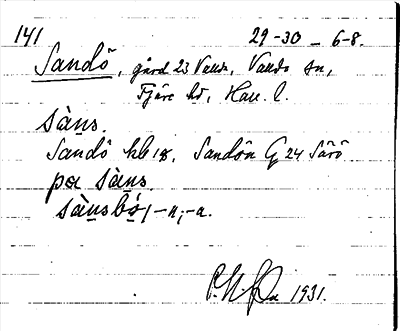 141 29-30 - 6-8.
Sandö, gård 23 Vallda, Vallda sn,
Fjäre hd, Hall. l.
sàṉs.
Sandö hb 18, Sandön G 24 Särö
pɑ sàṉs
sàṉsbó, -n, -a.
1931.